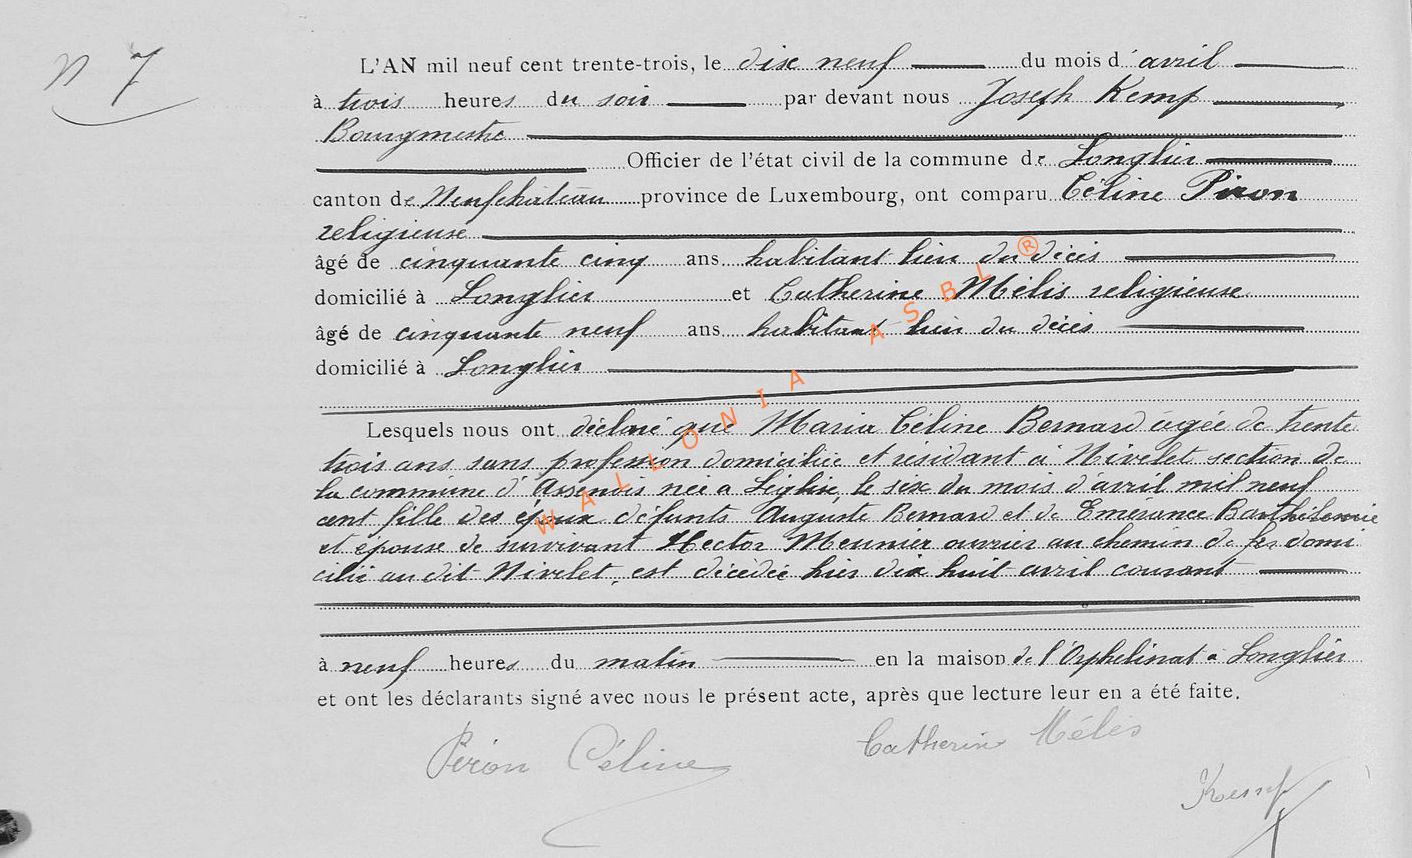 N 7
L'AN mil neuf cent trente-trois, le dix neuf du mois d'avril
à trois heures du soir par devant nous Joseph Kemp
Bourgmestre
Officier de l'état civil de la commune de Longlier
canton de Neufchâteau province de Luxembourg, ont comparu Céline Piron
religieuse
âgé de cinquante cinq ans habitant lieu du décès
domicilié à Longlier et Catherine Mélis religieuse
âgé de cinquante neuf ans habitant lieu du décès
domicilié à Longlier
Lesquels nous ont déclaré que Maria Céline Bernard âgée de trente
trois ans sans profession domiciliée et résidant à Nivelet section de
la commune d'Assenois née à Léglise, le six du mois d'avril mil neuf
cent fille des époux défunts Auguste Bernard et de Emerance Barthélemie
et épouse de survivant Hector Meunier ouvrier au chemin de fer domi
cilié au dit Nivelet, est décédée hier dix huit avril courant
à neuf heures du matin en la maison de l'Orphelinat à Longlier
et ont les déclarants signé avec nous le présent acte, après que lecture leur en a été faite.
Piron Céline
Catherine Mélis
Kemp
WALLONIA ASBL ®